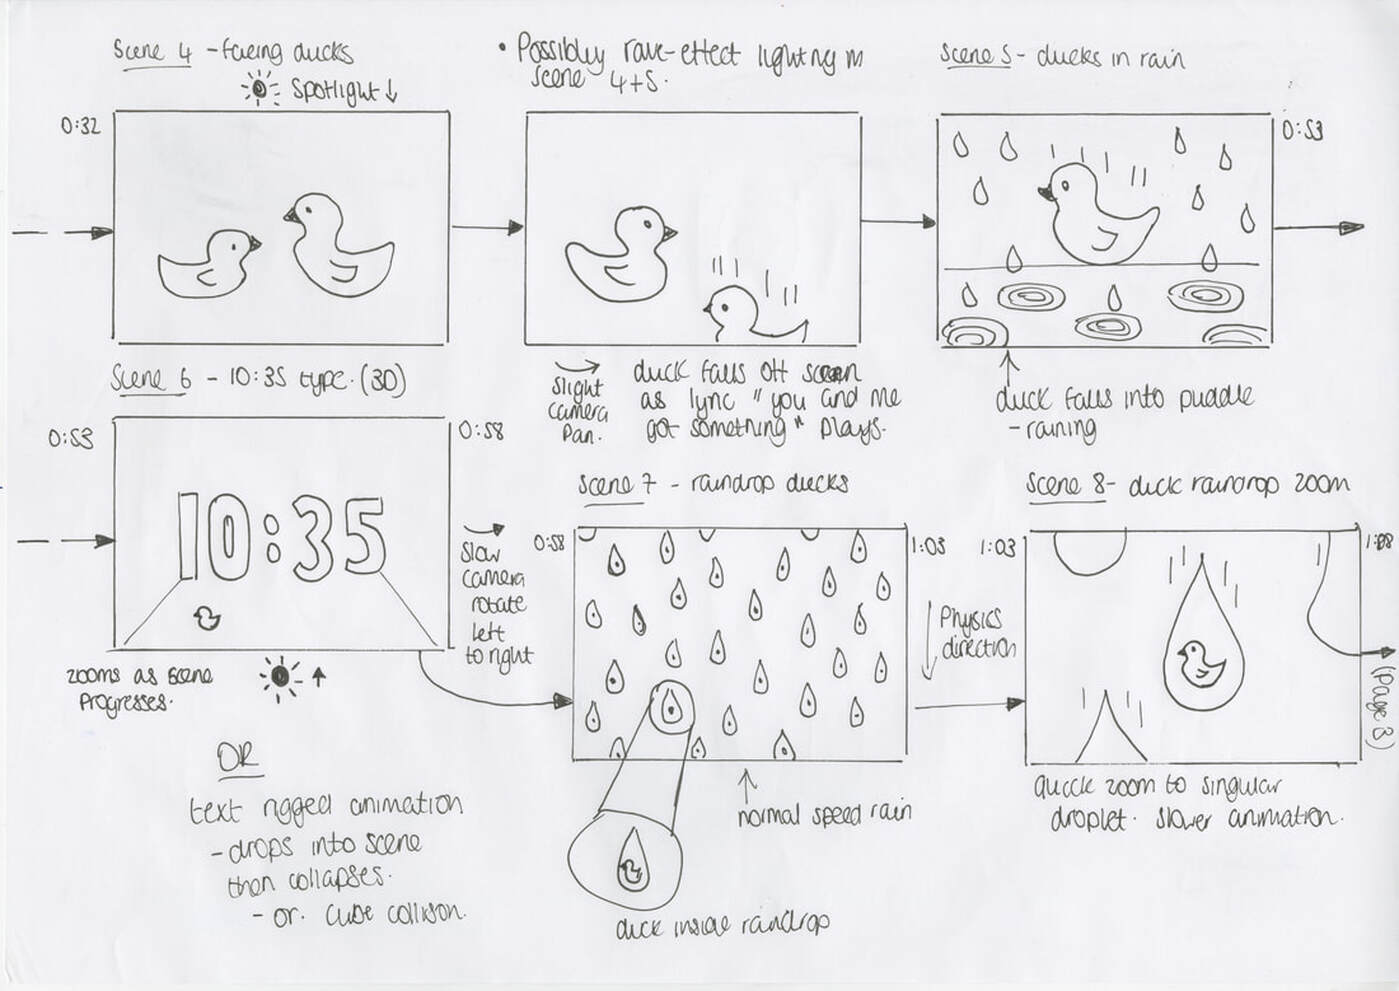 Scene 4 - facing ducks
Spotlight ↓
0:32
• Possibly rave-effect lighting in
scene 4+5.
Scene 5 - ducks in rain
0:53
slight
camera
pan.
duck falls off screen
as lyric "you and me
got something" plays.
duck falls into puddle
- raining
Scene 6 - 10:35 type. (3D)
0:53
0:58
10:35
Slow
camera
rotate
left
to right
zooms as scene
progresses.
OR
text rigged animation
- drops into scene
then collapses.
- or. cube collison.
Scene 7 - raindrop ducks
0:58
1:03
Physics
direction
normal speed rain
duck inside raindrop
Scene 8 - duck raindrop zoom
1:03
1:08
(page 3)
quick zoom to singular
droplet. slower animation.